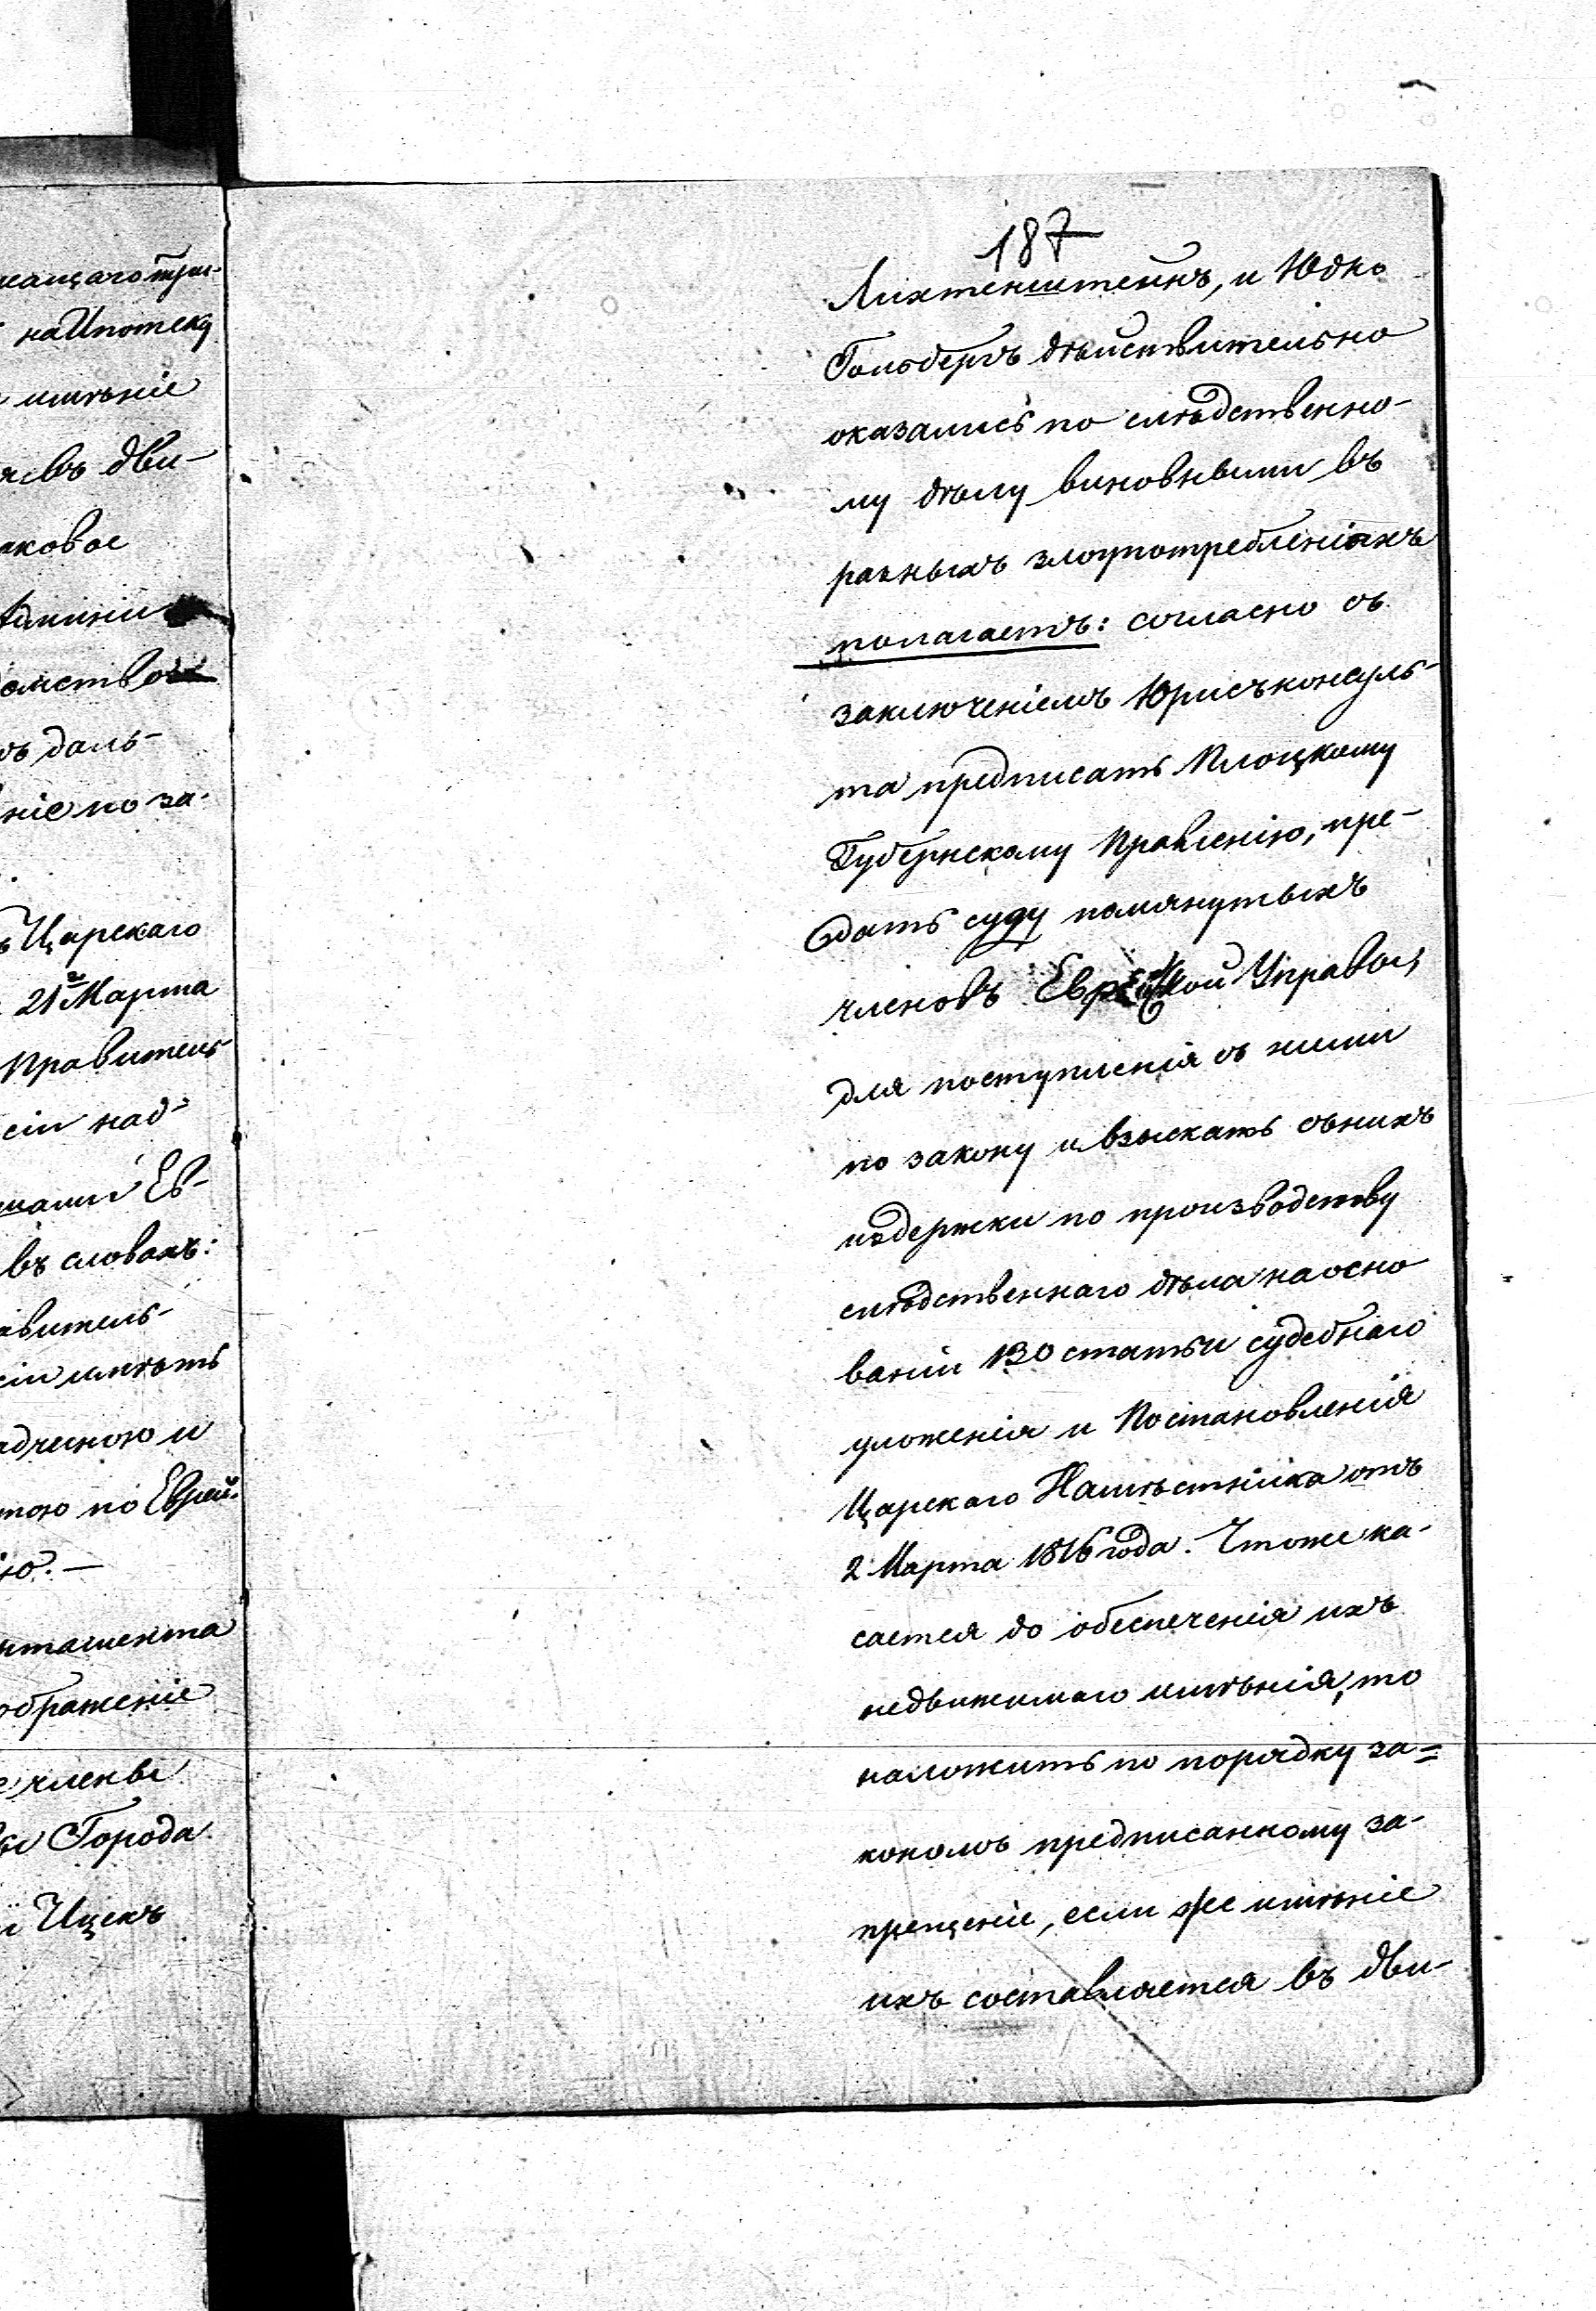 кащаго три-
на Ипотеку
имѣніе
въ дви-
аковое
даль-
ніе по за-
Царскаго
21 Марта
Правитель
сіи над-
Ев-
въ словахъ:
авитель-
сіи имѣть
тою по Еврей-
ію. —
ображеніе
члены
Города
Ицекъ
187
Лихтенштейнъ, и Юдка
Гольдбергъ дѣйствительно
оказались по слѣдственно-
му дѣлу виновными въ
разныхъ злоупотребленіяхъ
полагаетъ: согласно съ
заключеніемъ Юрисъконсуль-
та предписать Плоцкому
Губернскому Правленію, пре-
дать суду помянутыхъ
членовъ Еврейской Управы,
для поступленія съ ними
по закону и взыскать съ нихъ
издержки по производству
слѣдственнаго дѣла на осно
ваніи 130 статьи судебнаго
уложенія и Постановленія
Царскаго Намѣстника отъ
2 Марта 1816 года. Чтоже ка-
сается до обеспеченія ихъ
недвижимаго имѣнія, то
наложить по порядку за=
кономъ предписанному за-
прещеніе, если же имѣніе
ихъ составляется въ дви-